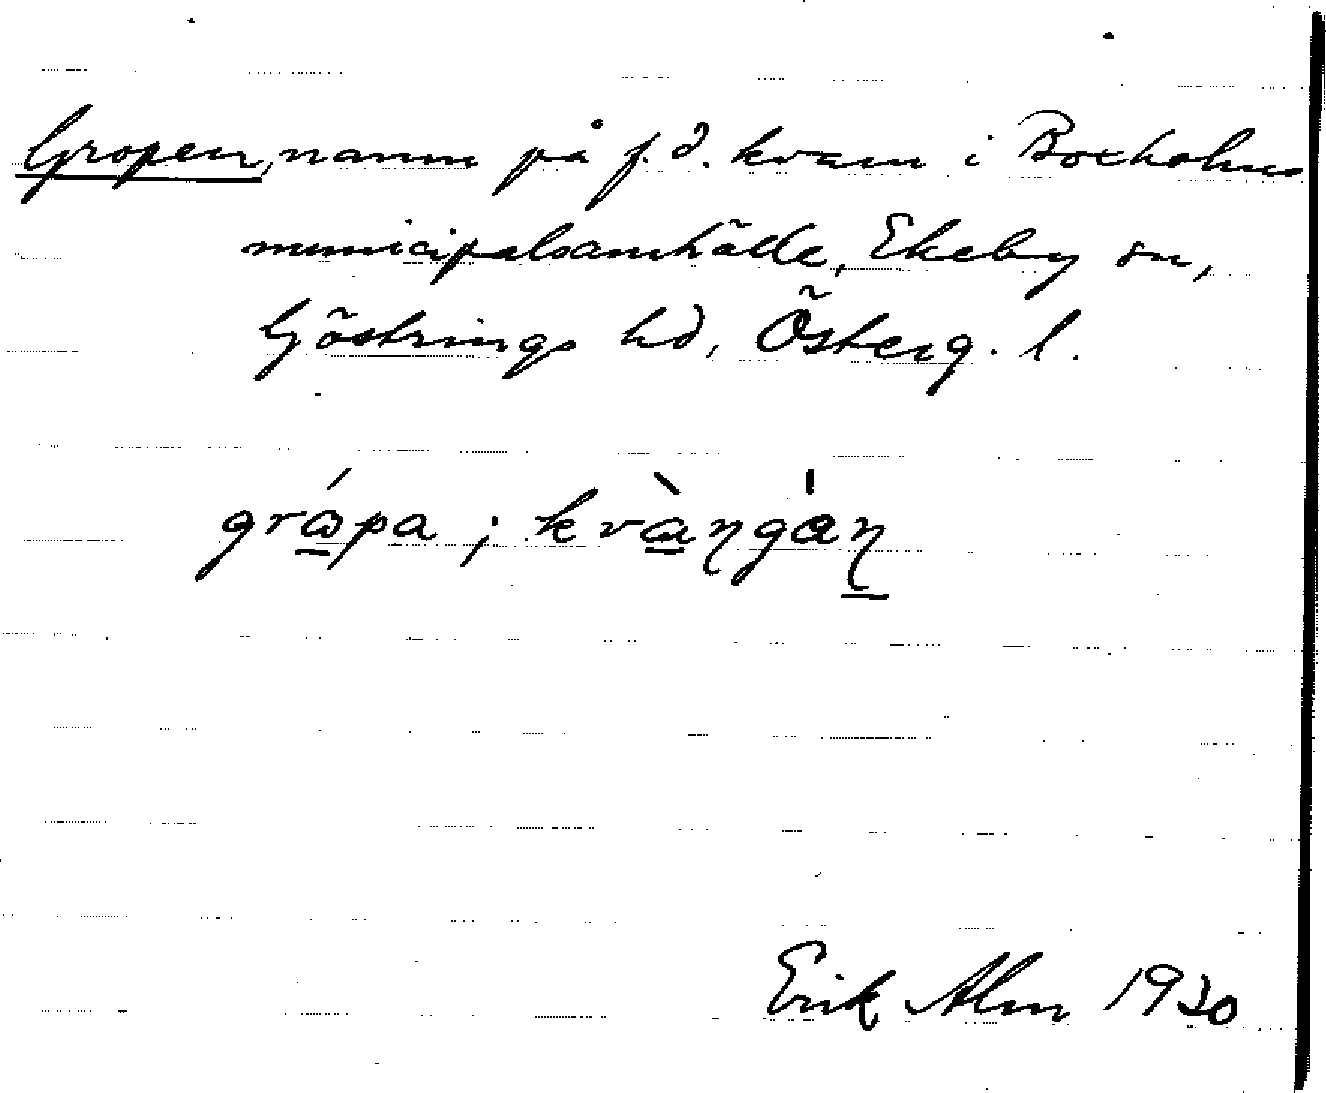 Gropen, namn på f.d. kvarn i Boxholms
municipalsamhälle, Ekeby sn,
Göstrings hd, Österg. l.
grápa; kvàŋgáŋ
Erik Alm 1920